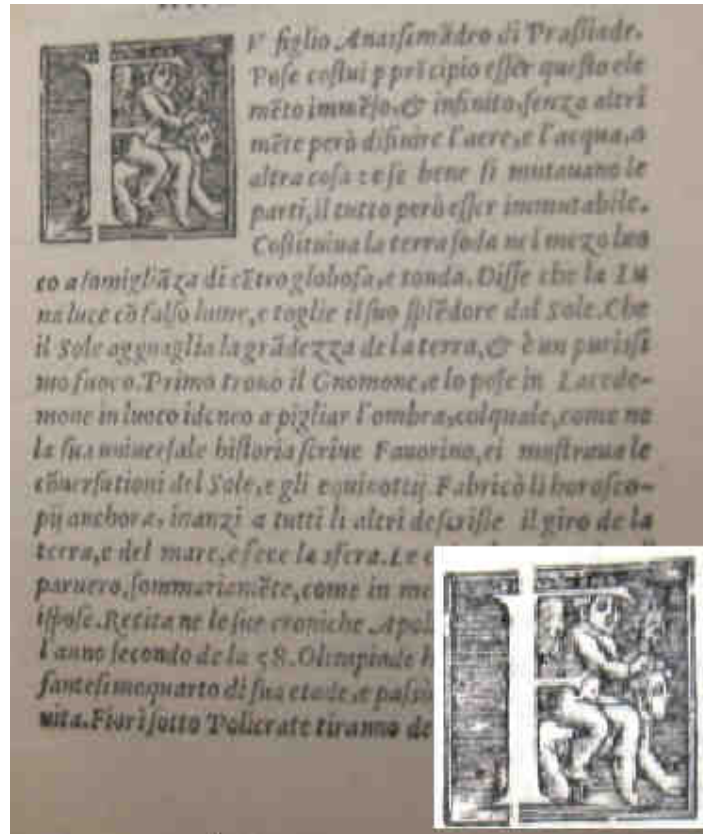 FV figlio Anaſſimãdro di Praſſiade.
Poſe coſtui p prĩcipio eſſer queſto ele
mẽto immẽſo, & infinito, ſenza altri
mẽte però difinire l'aere, e l'acqua, o
altra coſa: e ſe bene ſi mutauano le
parti, il tutto però eſſer immutabile.
Coſtituiua la terra ſoda nel mezo luo
co a ſomigliãza di cẽtro globoſa, e tonda. Diſſe che la Lu
na luce cõ falſo lume, e toglie il ſuo ſplẽdore dal Sole. Che
il Sole agguaglia la grãdezza de la terra, & è un puriſſi
mo fuoco. Primo trouo il Gnomone, e lo poſe in Lacede-
mone in luoco idoneo a pigliar l'ombra, colquale, come ne
la ſua uniuerſale hiſtoria ſcriue Fauorino, ei moſtraua le
cõuerſationi del Sole, e gli equinottij Fabricò li horoſco-
pij anchora, inanzi a tutti li altri deſcriſſe il giro de la
terra, e del mare, e fece la sfera. Le
paruero, ſommariamẽte, come in
iſpoſe. Recita ne le ſue croniche
l'anno ſecondo de la 58. Olimpiade
ſanteſimoquarto di ſua etade, e
uita. Fiorì ſotto Policrate tiranno de